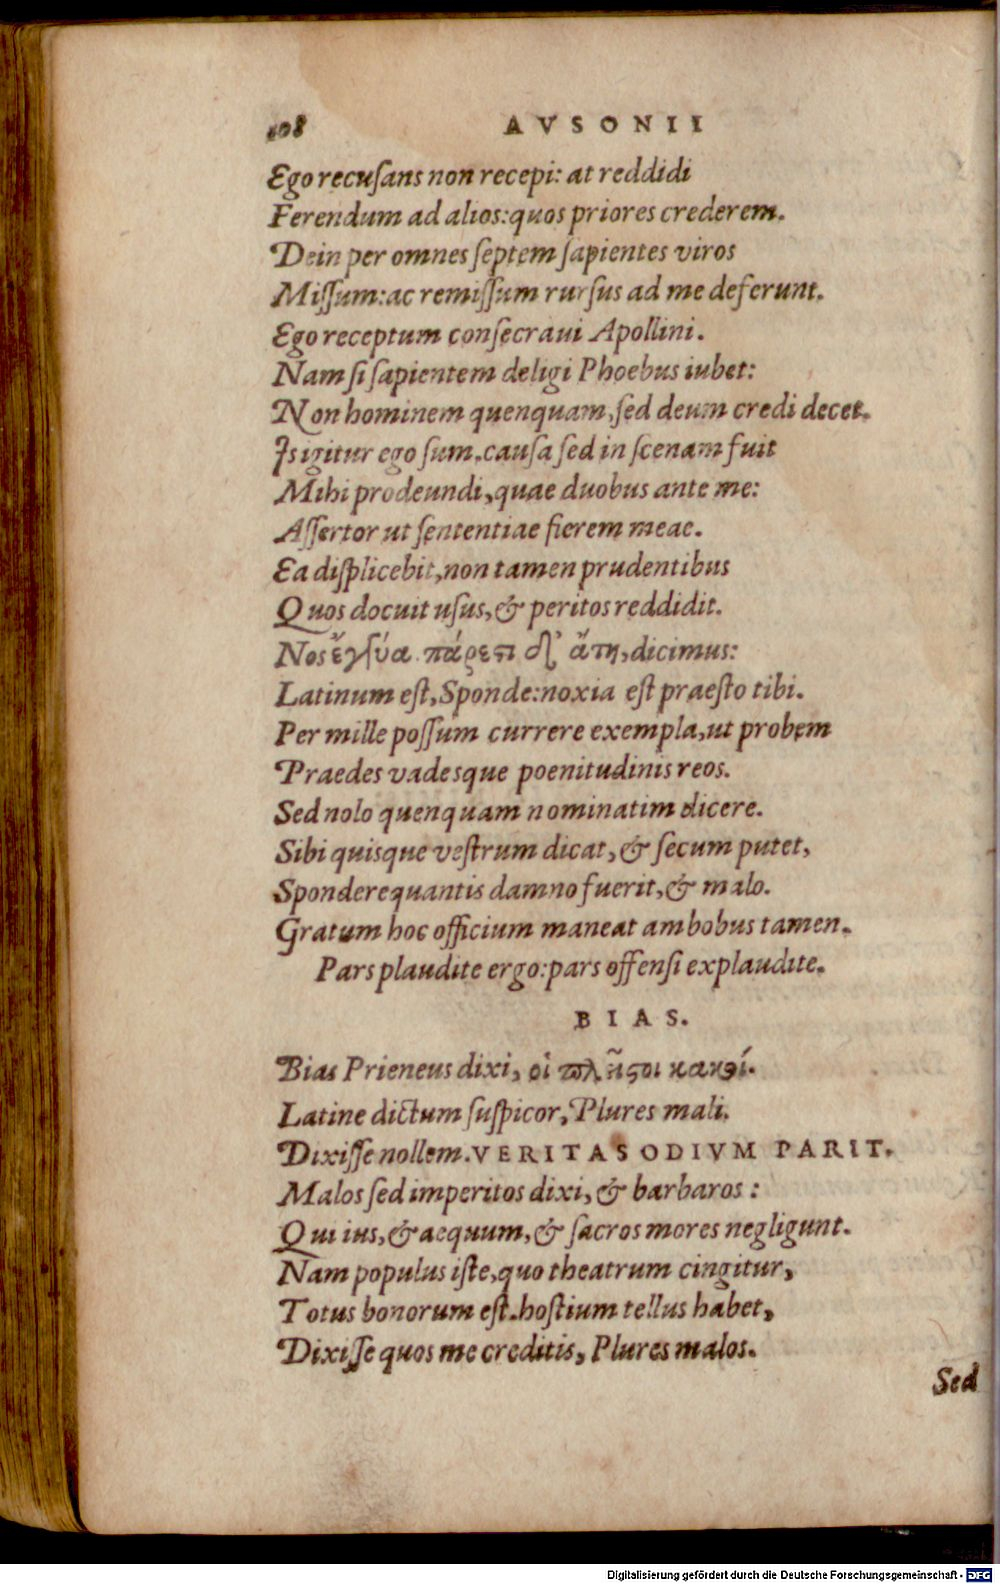 108 AVSONII
Ego recuſans non recepi: at reddidi
Ferendum ad alios: quos priores crederem.
Dein per omnes ſeptem ſapientes viros
Miſſum: ac remiſſum rurſus ad me deferunt.
Ego receptum conſecraui Apollini.
Nam ſi ſapientem deligi Phoebus iubet:
Non hominem quenquam, ſed deum credi decet.
Is igitur ego ſum. cauſa ſed in ſcenam fuit
Mihi prodeundi, quae duobus ante me:
Aſſertor ut ſententiae fierem meae.
Ea diſplicebit, non tamen prudentibus
Quos docuit uſus, & peritos reddidit.
Nos ἔγγύα πάρεστι δ᾽ ἄτη, dicimus:
Latinum eſt, Sponde: noxia eſt praeſto tibi.
Per mille poſſum currere exempla, ut probem
Praedes vadesque poenitudinis reos.
Sed nolo quenquam nominatim dicere.
Sibi quisque veſtrum dicat, & ſecum putet,
Spondere quantis damno fuerit, & malo.
Gratum hoc officium maneat ambobus tamen.
Pars plaudite ergo: pars offenſi explaudite.
BIAS.
Bias Prieneus dixi, οἱ πλῆστοι κακοί.
Latine dictum ſuſpicor, Plures mali.
Dixiſſe nollem. VERITAS ODIVM PARIT.
Malos ſed imperitos dixi, & barbaros:
Qui ius, & aequum, & ſacros mores negligunt.
Nam populus iſte, quo theatrum cingitur,
Totus bonorum eſt. hoſtium tellus habet,
Dixiſſe quos me creditis, Plures malos.
Sed
Digitalisierung gefördert durch die Deutsche Forschungsgemeinschaft - DFG